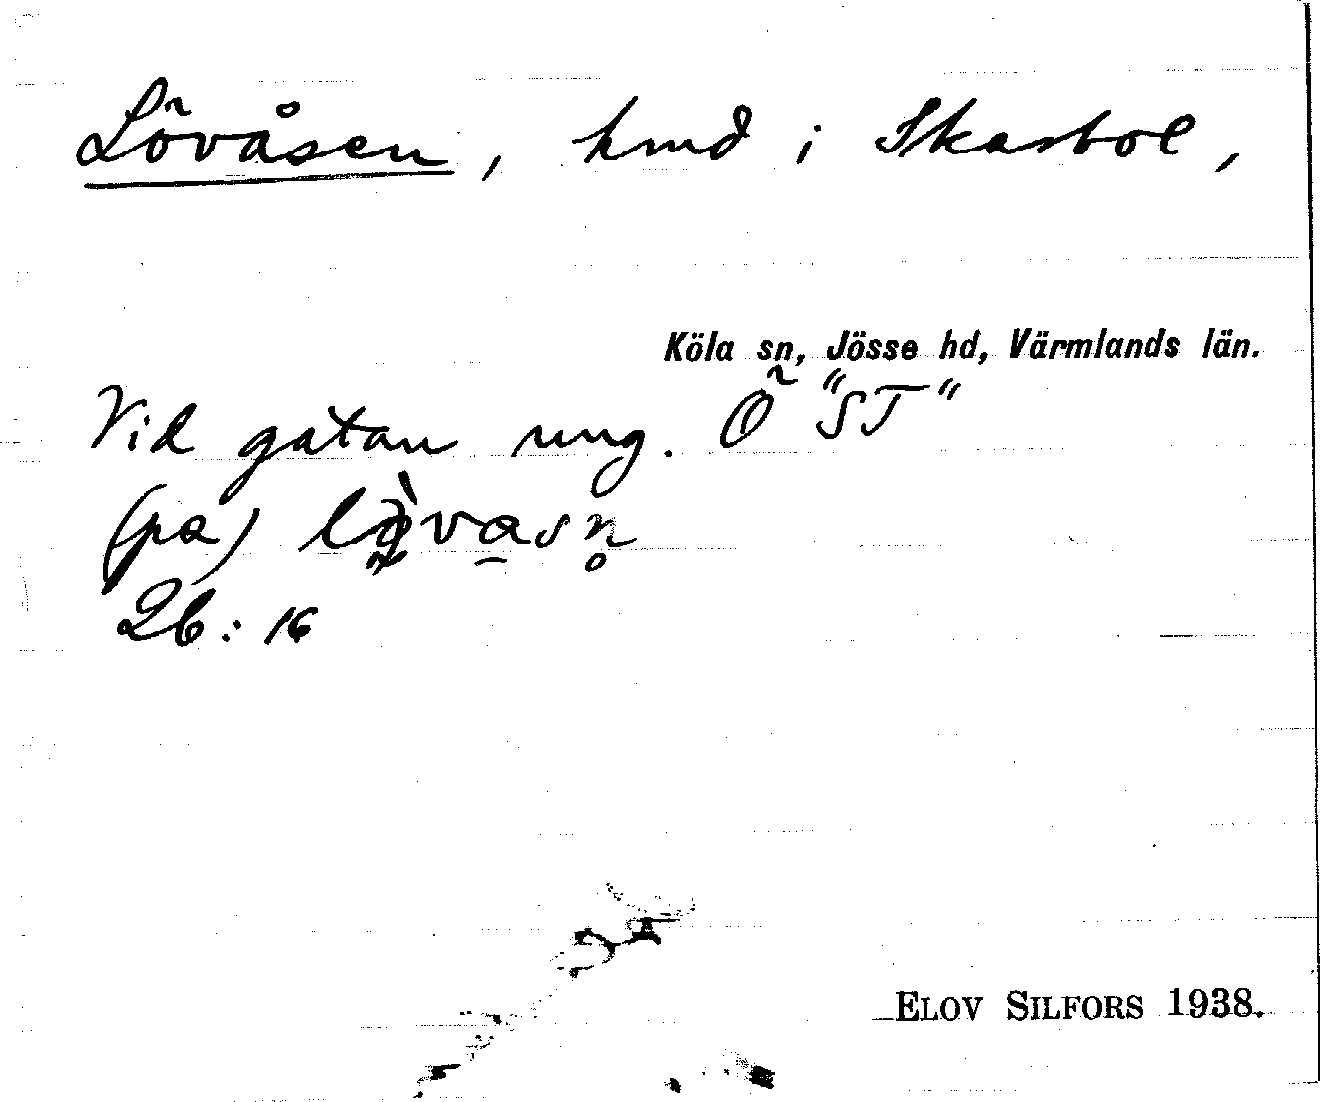 Lövåsen, hmd i Skarbol,
Köla sn, Jösse hd, Värmlands län.
Vid gatan ung. Ö "ST"
(på)
2b: 16
ELOV SILFORS 1938.